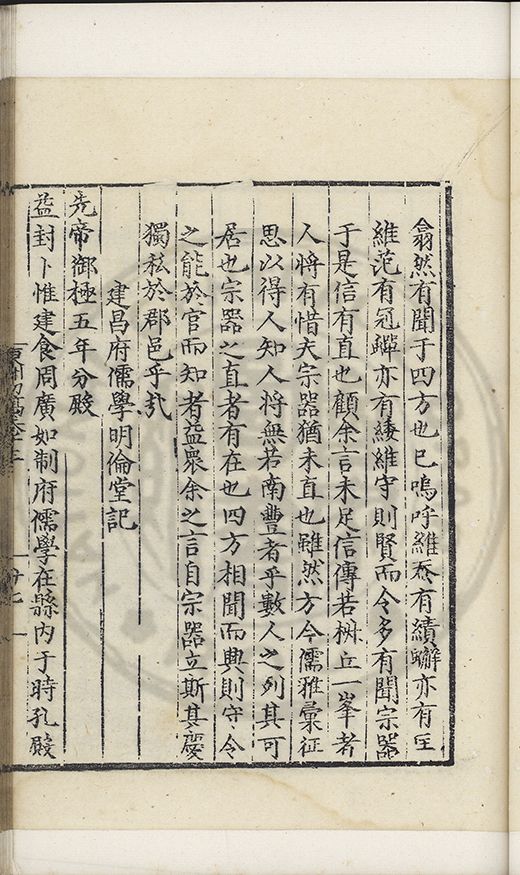 翕然有聞于四方也已嗚呼維蚕有績蠏亦有匡
維范有冠蟬亦有緌維守則賢而令多有聞宗器
于是信有直也顧余言未足信傳若樹丘一峯者
人將有惜夫宗器猶未直也雖然方今儒雅彙征
思以得人知人將無若南豐者乎數人之列其可
居也宗器之直者有在也四方相聞而興則守令
之能於官而知者益衆余之言自宗器立斯其慶
獨私於郡邑乎㢤
建昌府儒學明倫堂記
先帝御極五年分殿
益封卜惟建食周廣如制府儒學在縣內于時孔殿
十七